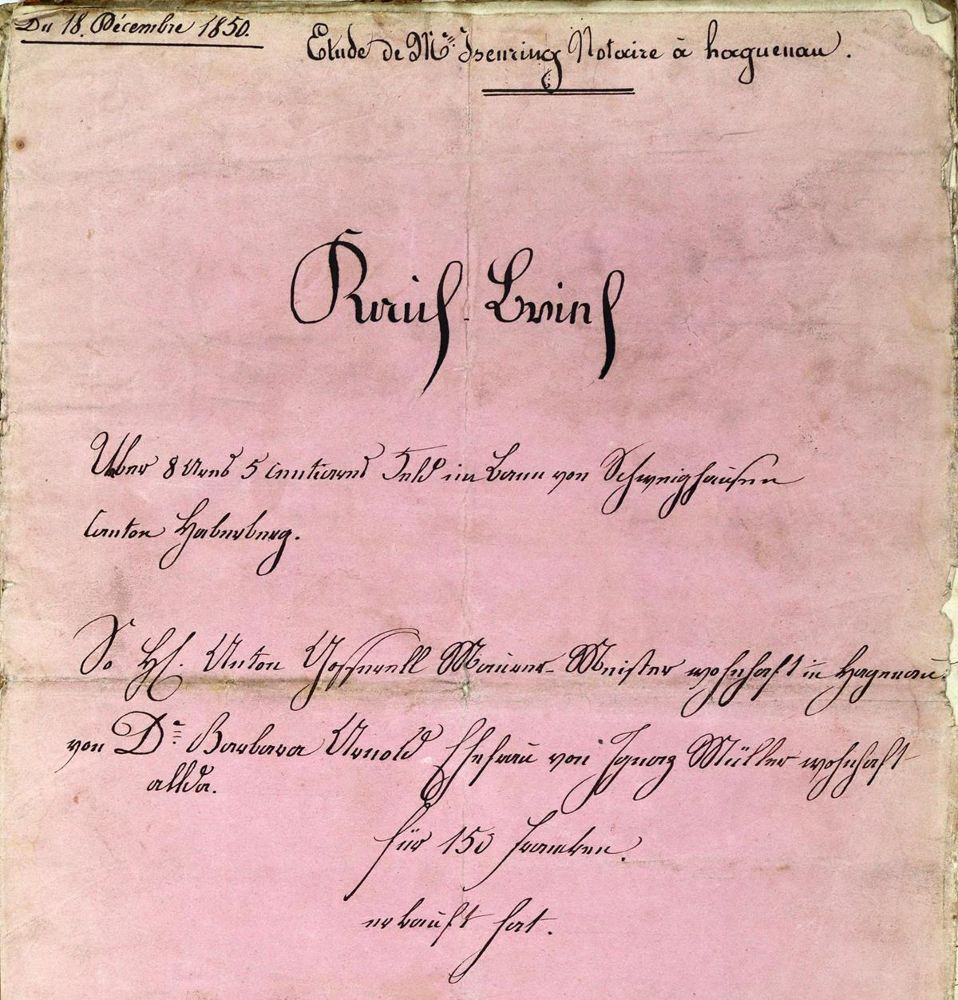 Du 18. Décembre 1850.
Etude de Me. Isenring Notaire à haguenau.
Kauf-Brief
Über 8 Ares 5 centiares Feld im Bann von Schweighausen
Canton Haberberg.
So Hr. Anton Maurer-Meister wohnhaft in Hagenau.
von De. Barbara Arnold Ehefrau von Ignaz Müller wohnhaft
allda.
für 150 Franken.
erkauft hat.